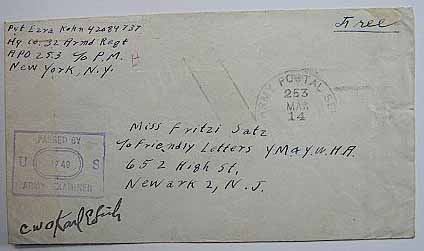 Pvt Ezra Kohn 42084737
Hq Co. 32 Armd Regt
APO 253 c/o P.M.
New York, N.Y.
Free
ARMY POSTAL
253
MAR
14
Miss Fritzi Satz
c/o Friendly Letters YM&Y.W.H.A.
652 High St.
Newark 2, N.J.
PASSED BY
U S
ARMY EXAMINER
CWO Karl